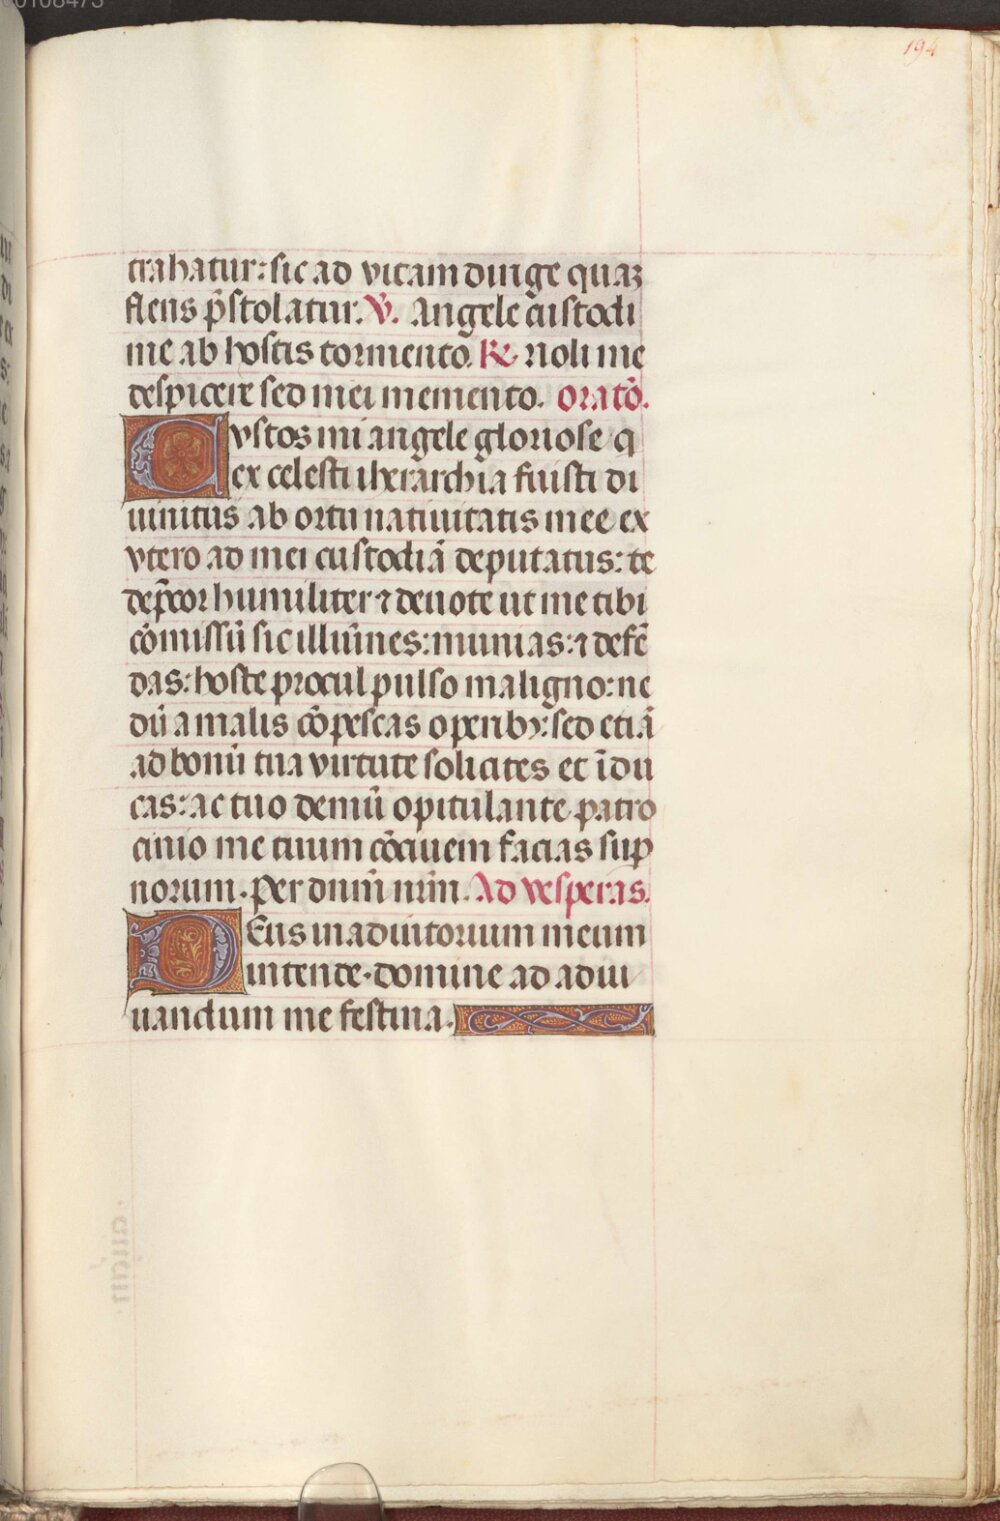 194
trahatur: sic ad vitam dirige quaꝫ
flens p̃stolatur. ℣. Angele custodi
me ab hostis tormento. ℟. Noli me
despicere sed mei memento. Oratõ.
Cvstos mi angele gloriose q
ex celesti iherarchia fuisti di
uinitus ab ortu natiuitatis mee ex
vtero ad mei custodiã deputatus: te
dep̃cor humiliter ⁊ deuote ut me tibi
cõmissũ sic illũines: munias: ⁊ defẽ
das: hoste procul pulso maligno: ne
dũ a malis cõpescas operibꝰ: sed etiã
ad bonũ tua virtute solicites et ĩdu
cas: ac tuo demũ opitulante patro
cinio me tuum cõciuem facias suꝑ
norum. Per dnm̃ nrm̃. Ad vesperas.
DEus in adiutorium meum
intende. domine ad adiu
uandum me festina.